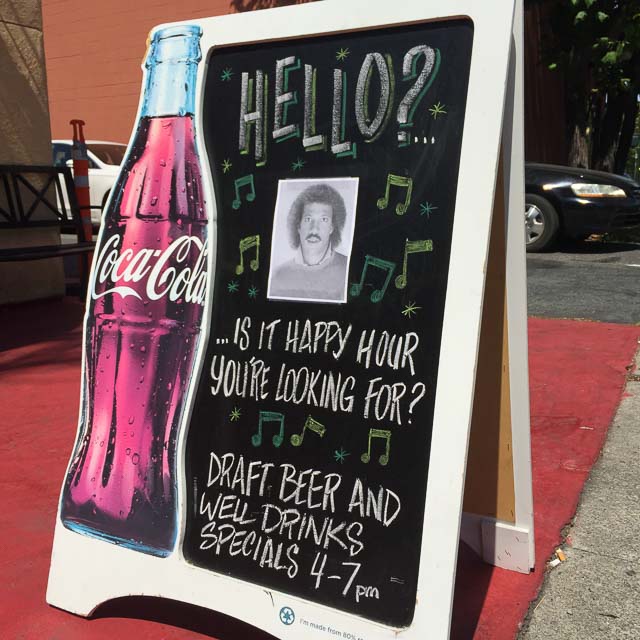 HELLO?...
Coca-Cola
...IS IT HAPPY HOUR
YOU'RE LOOKING FOR?
DRAFT BEER AND
WELL DRINKS
SPECIALS 4-7pm
I'm made from 80%